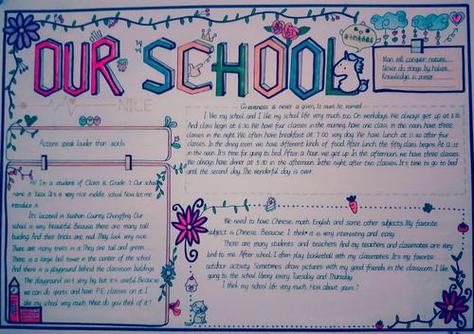 OUR SCHOOL
NICE
Man will conquer nature.
Never do things by halves.
Knowledge is power.
Actions speak louder than words.
Greatness is never a given, It must be earned
I like my school and I like my school life very much too. On weekdays. We always get up at 6:30.
And class begin at 8:30. We have four classes in the morning. Have one class in the noon. have three
classes in the night. We often have breakfast at 7:00 very day. We have lunch at 12:00 after four
classes. In the dining room we have different kinds of food. After lunch the fifty class begins. At
in the noon. It's time for going to bed. After a hour we get up. In the afternoon we have three classes.
We always have dinner at 5:30 in the afternoon. In the night. after two classes. It's time to go to bed
until the second day. The wonderful day is over.
Hi! I'm a student of Class 6, Grade 7. Our school
name is It's a very nice middle school. Now let me
introduce it.
It's located in County, Chongqing. Our
school is very beautiful. Because there are many tall
building. And their bricks are red. They look very nice.
There are many trees in it. They are tall and green.
There is a large bell tower in the center of the school.
And there is a playground behind the classroom buildings.
The playground isn't very big but it is useful. Because
we can do sports and have P.E. classes on it. I
like my school very much. What do you think of it?
We need to have Chinese. math. English and some other subjects. My favorite
subject is Chinese. Because I think it is very interesting and easy.
There are many students and teachers. And my teachers and classmates are very
kind to me. After school. I often play basketball with my classmates. It's my favorite
outdoor activity. Sometimes draw pictures with my good friends in the classroom. I like
going to the school library every Tuesday and Thursday.
I think my school life very much. How about yours?